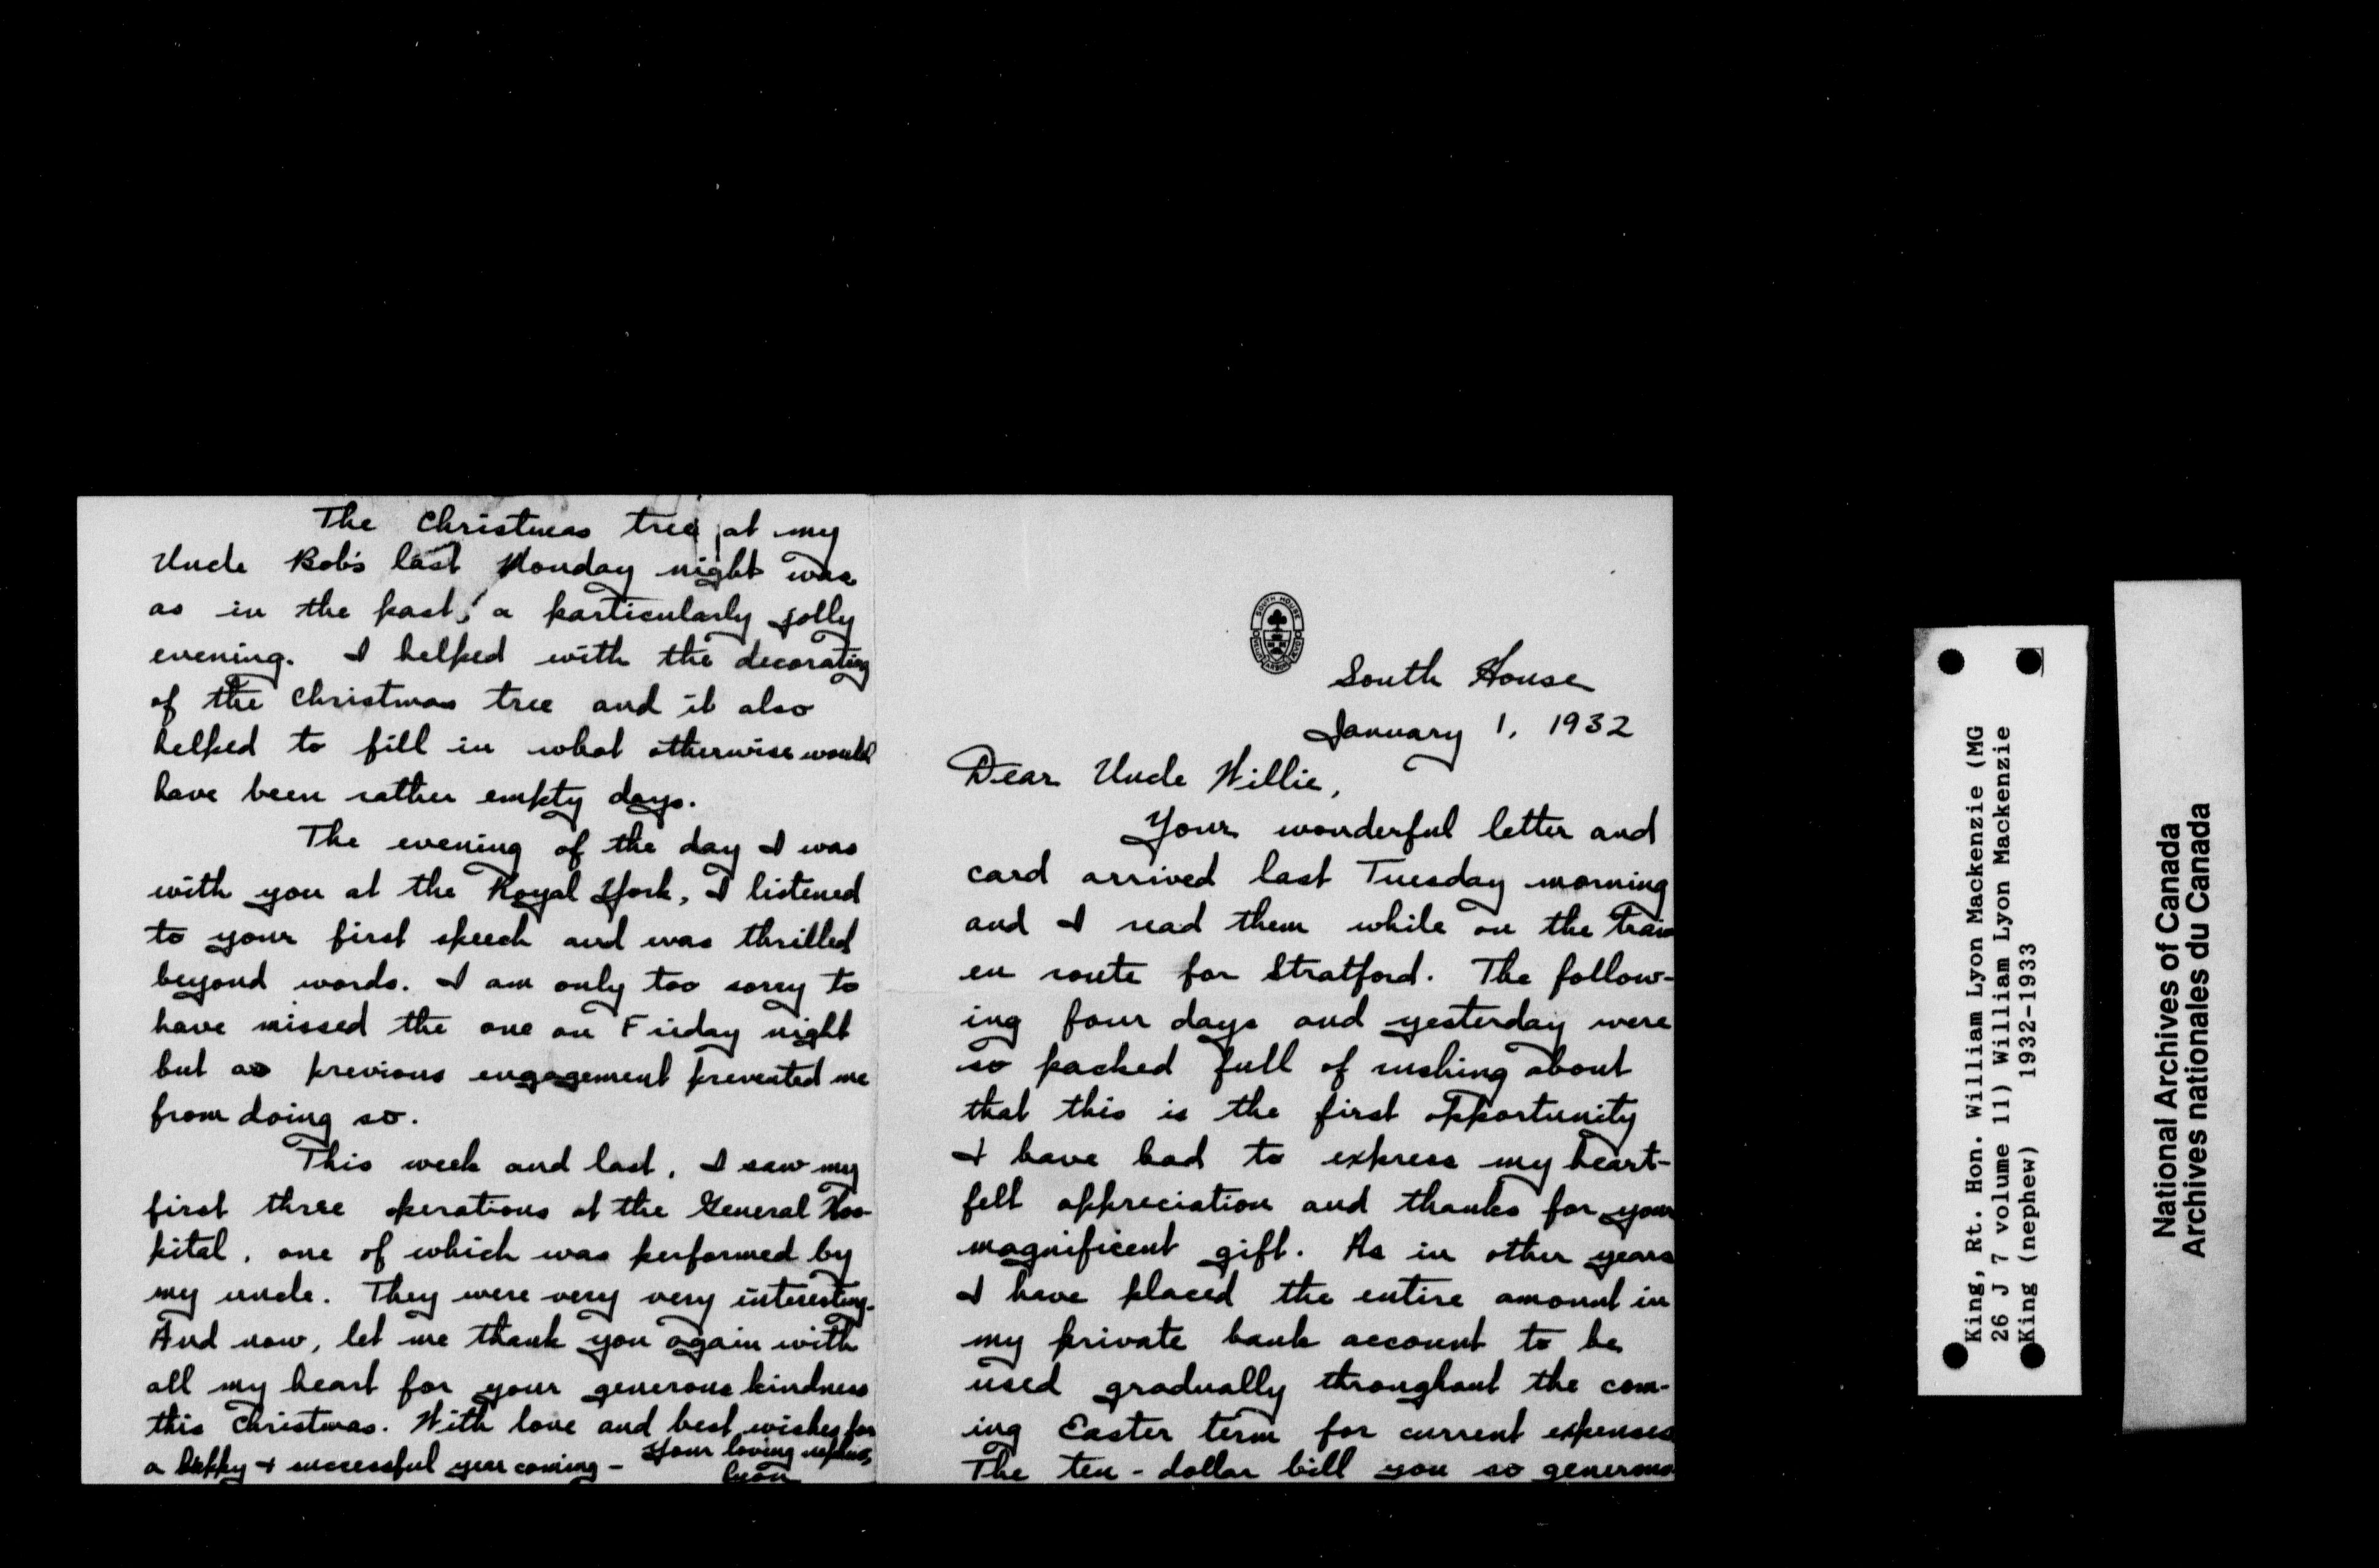 SOUTH HOUSE
South House
January 1, 1932
Dear Uncle Willie,
Your wonderful letter and
card arrived last Tuesday morning
and I read them while on the train
en route for Stratford. The follow-
ing four days and yesterday were
so packed full of rushing about
that this is the first opportunity
I have had to express my heart-
felt appreciation and thanks for your
magnificent gift. As in other years
I have placed the entire amount in
my private bank account to be
used gradually throughout the com-
ing Easter term for current expenses
The ten-dollar bill you so generous
The Christmas tree at my
Uncle Bob's last Monday night was
as in the past, a particularly jolly
evening. I helped with the decorating
of the Christmas tree and it also
helped to fill in what otherwise would
have been rather empty days.
The evening of the day I was
with you at the Royal York, I listened
to your first speech and was thrilled
beyond words. I am only too sorry to
have missed the one on Friday night
but as previous engagement prevented me
from doing so.
This week and last, I saw my
first three operations at the General Hos-
pital, one of which was performed by
my uncle. They were very very interesting.
And now, let me thank you again with
all my heart for your generous kindness
this Christmas. With love and best wishes for
a happy + successful year coming –
Your loving nephew,
Lyon
King, Rt. Hon. William Lyon Mackenzie (MG
26 J 7 volume 11) William Lyon Mackenzie
King (nephew) 1932-1933
National Archives of Canada
Archives nationales du Canada